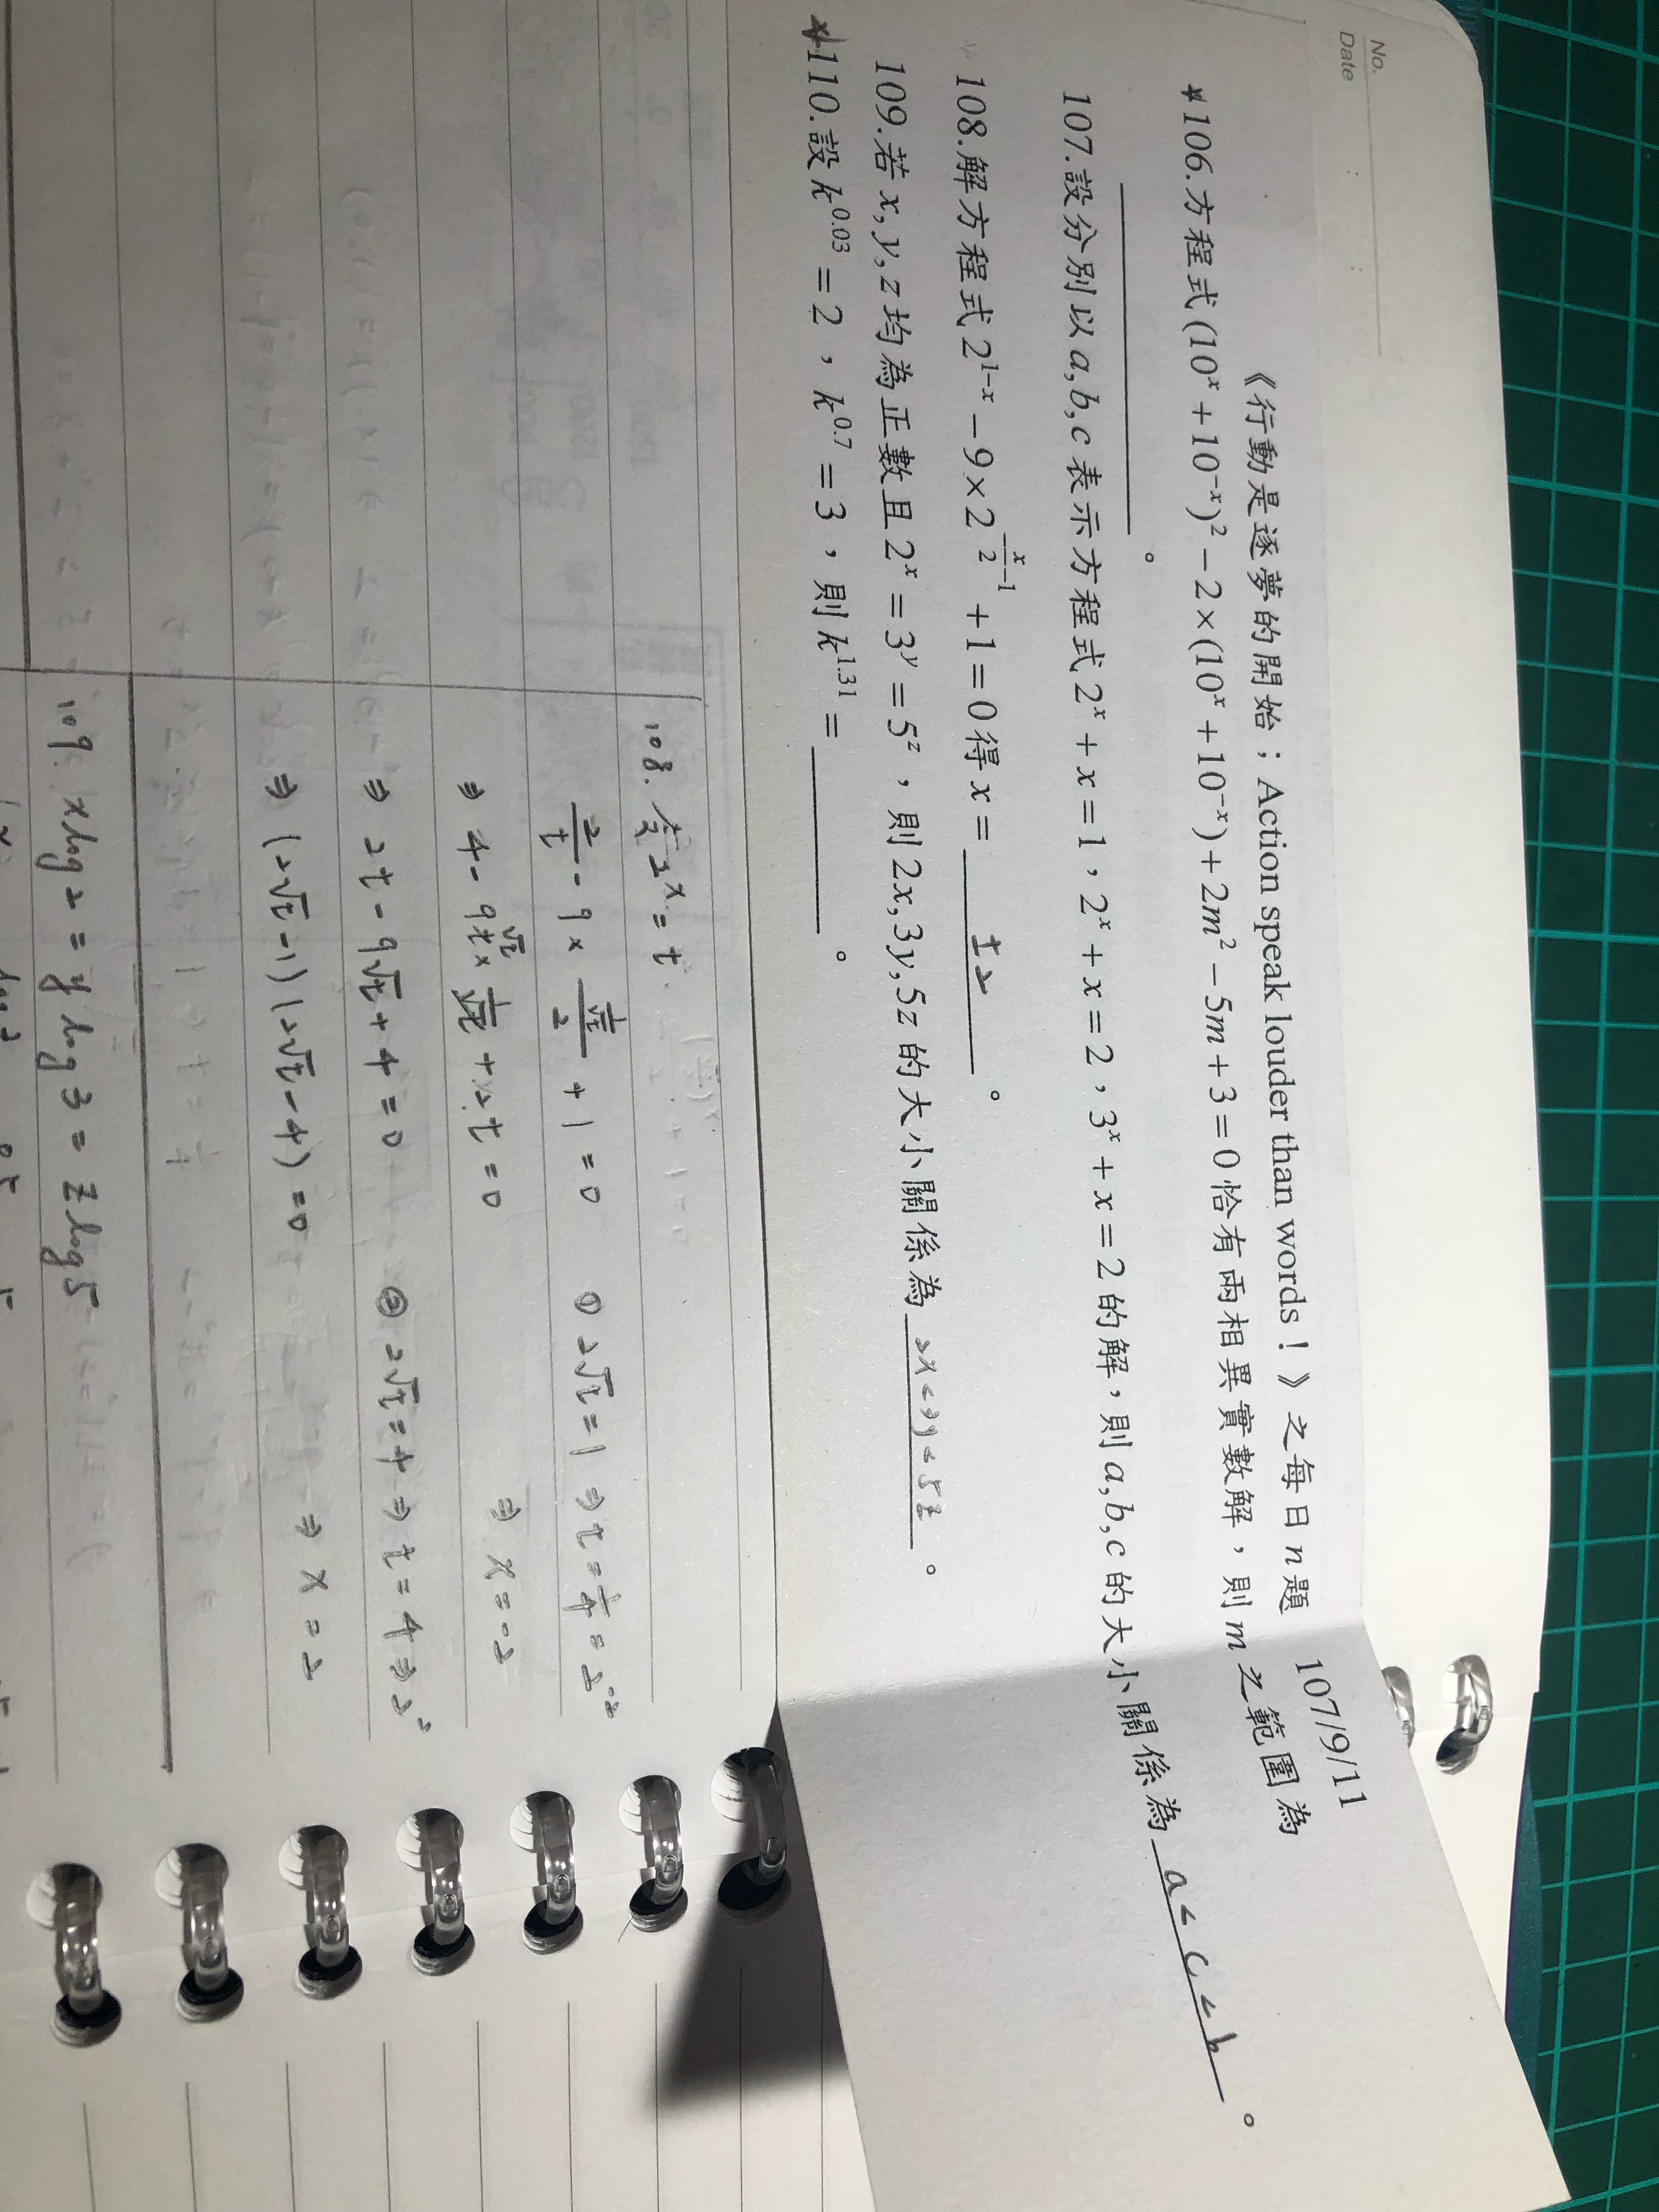 No.
Date : :
《行動是逐夢的開始；Action speak louder than words！》之每日n題 107/9/11
106.方程式(10^x+10^{-x})^2-2×(10^x+10^{-x})+2m^2-5m+3=0恰有兩相異實數解，則m之範圍為
________。
107.設分別以a,b,c表示方程式2^x+x=1，2^x+x=2，3^x+x=2的解，則a,b,c的大小關係為 a<c<b 。
108.解方程式2^{1-x}-9×2^{-\frac{x}{2}-1}+1=0得x= ±2 。
109.若x,y,z均為正數且2^x=3^y=5^z，則2x,3y,5z的大小關係為 2x<3y<5z 。
110.設k^{0.03}=2，k^{0.7}=3，則k^{1.31}=________。
108. 令2^x=t.
\frac{2}{t}-9×\frac{\frac{1}{\sqrt{t}}}{2}+1=0 ① 2\sqrt{t}=1⇒t=\frac{1}{4}=2^{-2}
⇒x=-2
⇒2t-9\sqrt{t}+4=0 ② 2\sqrt{t}=4⇒t=4⇒2^2
⇒(2\sqrt{t}-1)(2\sqrt{t}-4)=0 ⇒x=2
109. xlog2=ylog3=zlog5